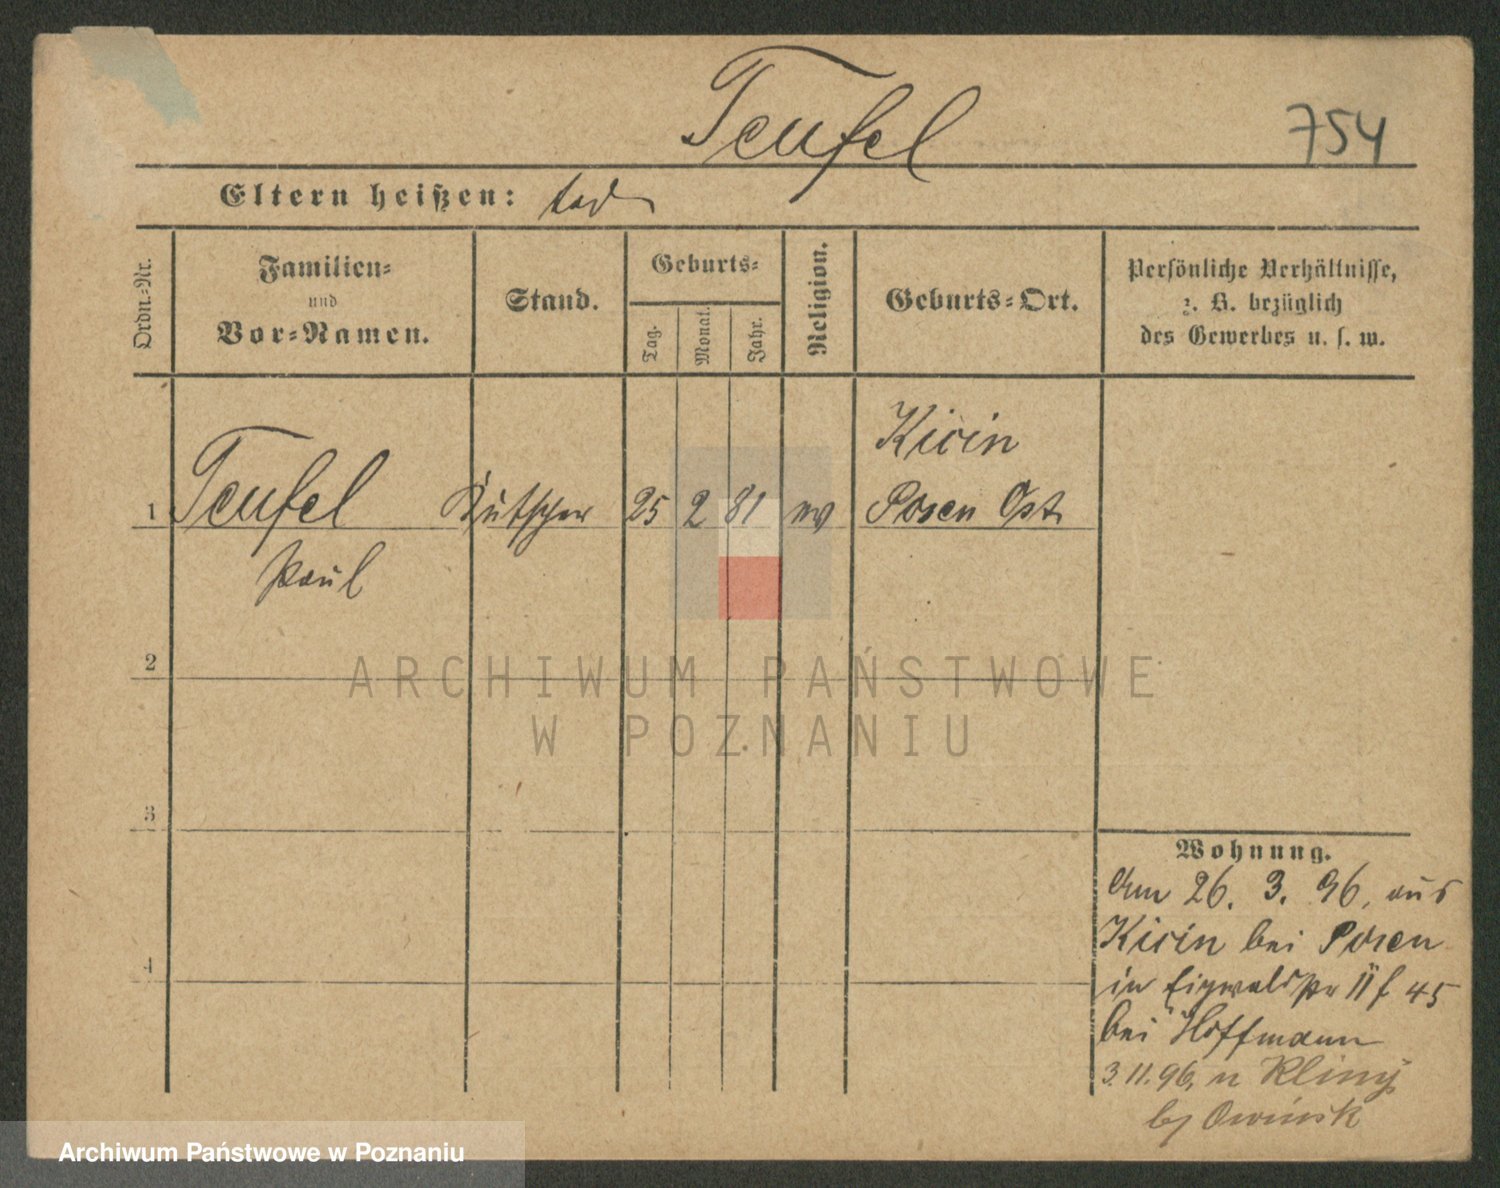 Teufel
754
Eltern heißen: tod
Ordn.-Nr.
Familien-
und
Vor-Namen.
Stand.
Geburts-
Tag.
Monat.
Jahr.
Religion.
Geburts-Ort.
Persönliche Verhältnisse,
z. B. bezüglich
des Gewerbes u. s. w.
Kicin
1 Teufel Kutscher 25 2 81 ev Posen Ost
Paul
2
ARCHIWUM PAŃSTWOWE
W POZNANIU
3
Wohnung.
Am 26. 3. 96. aus
Kicin bei Posen
4
in 45
bei Hoffmann
3.11.96, n Kliny
b/ Owinsk
Archiwum Państwowe w Poznaniu